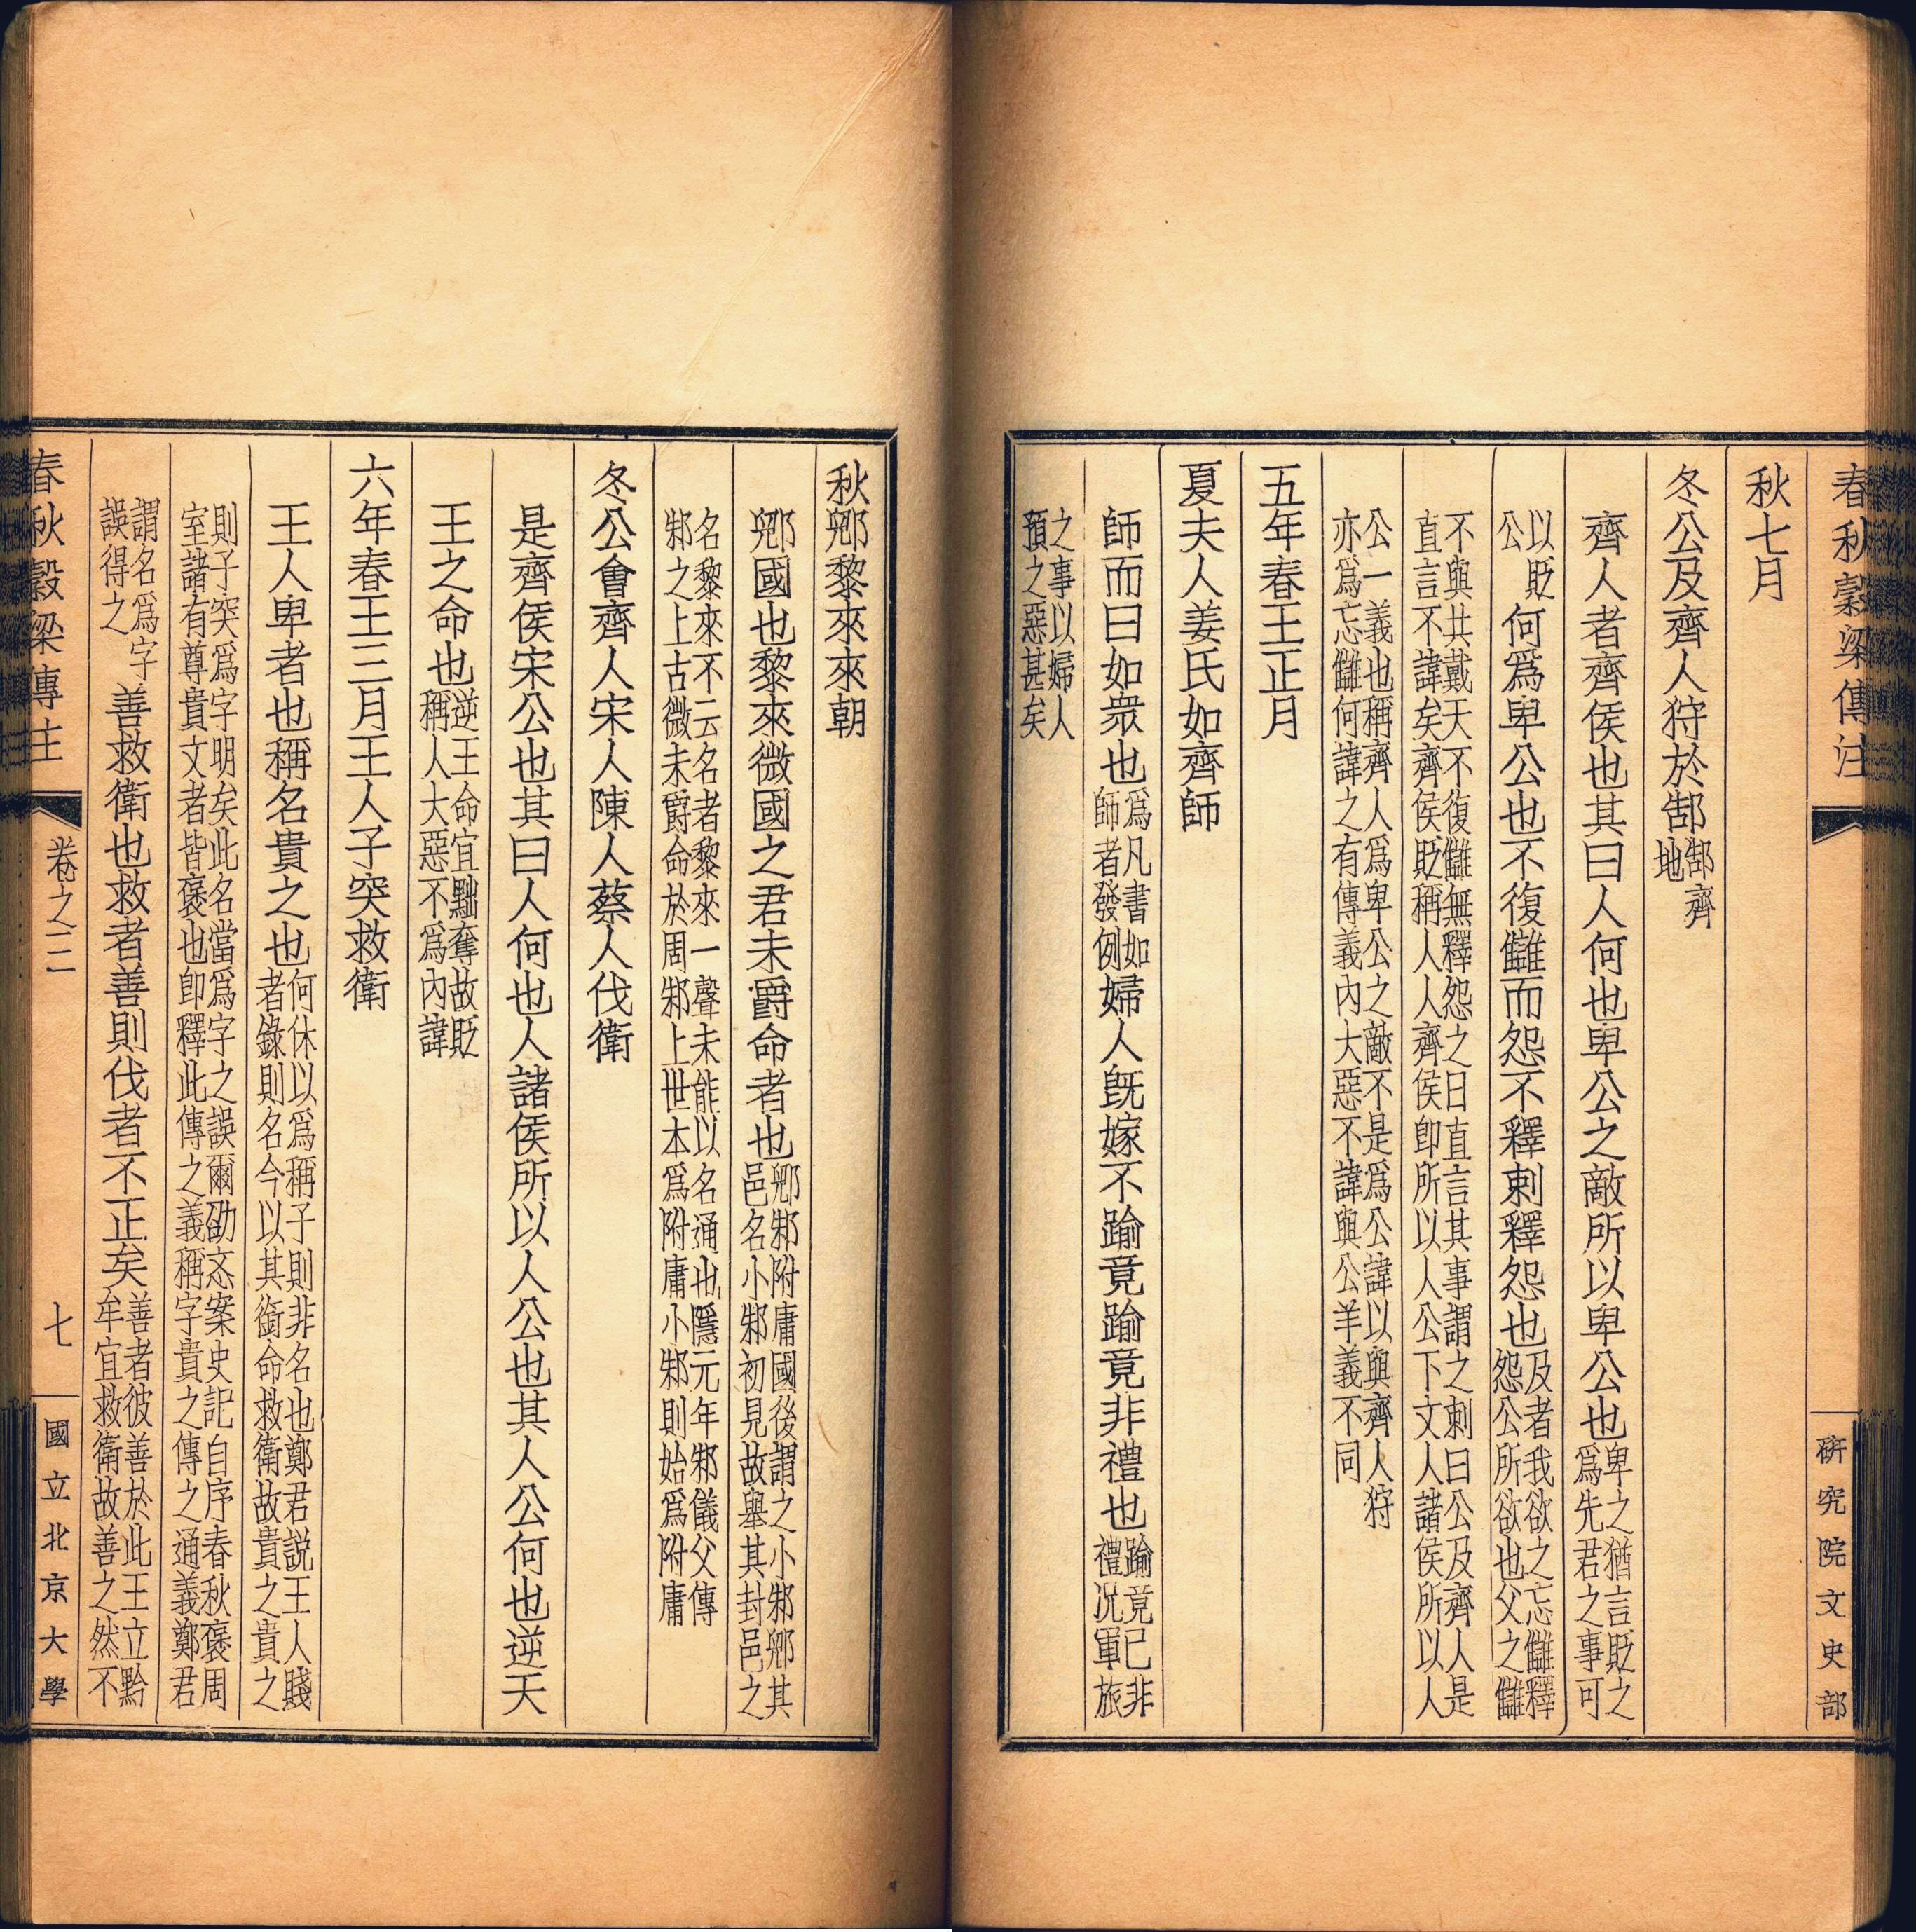 春秋穀梁傳注
研究院文史部
秋七月
冬公及齊人狩於郜郜齊地
齊人者齊侯也其曰人何也卑公之敵所以卑公也卑之猶言貶之爲先君之事可
以貶公何爲卑公也不復讎而怨不釋刺釋怨也及者我欲之忘讎釋怨公所欲也父之讎
不與共戴天不復讎無釋怨之日直言其事謂之刺曰公及齊人是
直言不諱矣齊侯貶稱人人齊侯卽所以人公下文人諸侯所以人
公一義也稱齊人爲卑公之敵不是爲公諱以與齊人狩
亦爲忘讎何諱之有傳義內大惡不諱與公羊義不同
五年春王正月
夏夫人姜氏如齊師
師而曰如衆也爲凡書如師者發例婦人旣嫁不踰竟踰竟非禮也踰竟已非禮況軍旅
之事以婦人
預之惡甚矣
秋郳黎來來朝
郳國也黎來微國之君未爵命者也郳邾附庸國後謂之小邾郳其邑名小邾初見故舉其封邑之
名黎來不云名者黎來一聲未能以名通也隱元年邾儀父傳
邾之上古微未爵命於周邾上世本爲附庸小邾則始爲附庸
冬公會齊人宋人陳人蔡人伐衛
是齊侯宋公也其曰人何也人諸侯所以人公也其人公何也逆天
王之命也逆王命宜黜奪故貶稱人大惡不爲內諱
六年春王三月王人子突救衛
王人卑者也稱名貴之也何休以爲稱子則非名也鄭君説王人賤者錄則名今以其銜命救衛故貴之貴之
則子突爲字明矣此名當爲字之誤爾劭忞案史記自序春秋褒周
室諸有尊貴文者皆褒也卽釋此傳之義稱字貴之傳之通義鄭君
謂名爲字誤得之善救衛也救者善則伐者不正矣善者彼善於此王立黔牟宜救衛故善之然不
春秋穀梁傳注
卷之二
七
國立北京大學